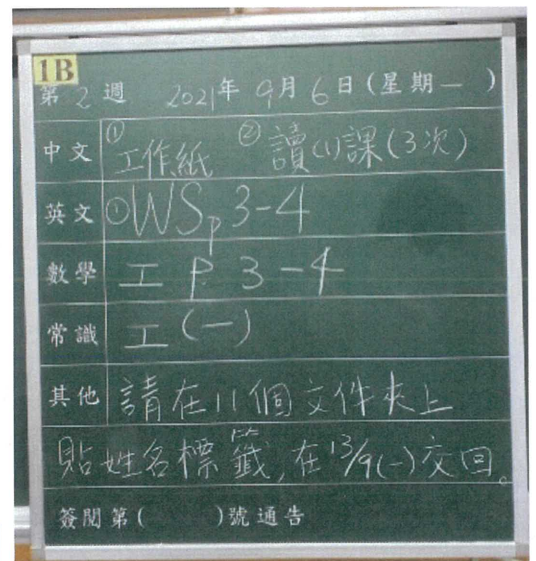 1B
第 2 週 2021年 9月 6日(星期一 )
中文 ①工作紙 ②讀(1)課(3次)
英文 ①WS p 3-4
數學 工 P. 3-4
常識 工(一)
其他 請在11個文件夾上
貼姓名標籤,在13/9(一)交回。
簽閱第( )號通告